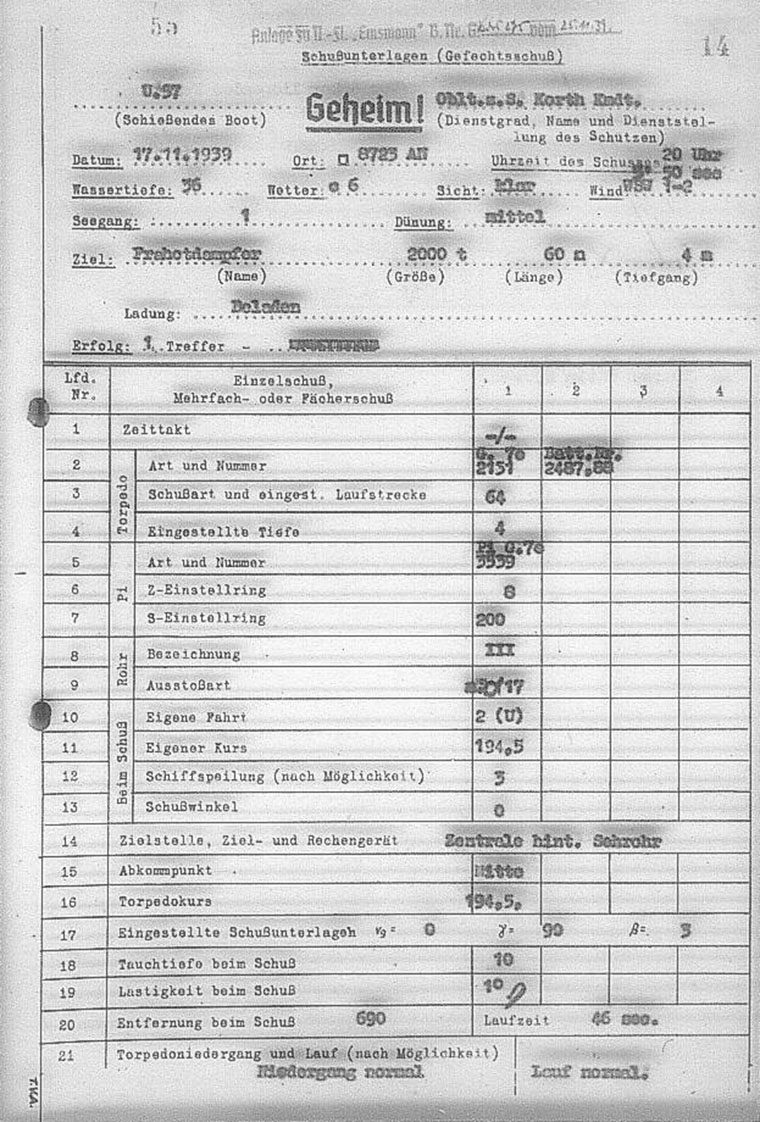 53
Anlage zu U-Fl. „Emsmann" B. Nr. G vom 25.11.39
14
Schußunterlagen (Gefechtsschuß)
U.57 Geheim! Oblt.z.S. Korth Kmdt.
(Schießendes Boot) (Dienstgrad, Name und Dienststel-
lung des Schützen)
Datum: 17.11.1939 Ort: □ 8723 AN Uhrzeit des Schusses 20 Uhr
50 sec
Wassertiefe: 36 Wetter: c 6 Sicht: klar Wind WSW 1-2
Seegang: 1 Dünung: mittel
Ziel: Frahctdampfer 2000 t 60 m 4 m
(Name) (Größe) (Länge) (Tiefgang)
Ladung: Beladen
Erfolg: 1 Treffer -
Lfd. Nr. Einzelschuß, Mehrfach- oder Fächerschuß 1 2 3 4
1 Zeittakt -/-
Torpedo
2 Art und Nummer G. 7e 2151 Batt.Nr. 2487.88
3 Schußart und eingest. Laufstrecke 64
4 Eingestellte Tiefe 4
Pi
5 Art und Nummer Pi G.7e 3939
6 Z-Einstellring 8
7 S-Einstellring 200
Rohr
8 Bezeichnung III
9 Ausstoßart /17
Beim Schuß
10 Eigene Fahrt 2 (U)
11 Eigener Kurs 194,5
12 Schiffspeilung (nach Möglichkeit) 3
13 Schußwinkel 0
14 Zielstelle, Ziel- und Rechengerät Zentrale hint. Sehrohr
15 Abkommpunkt Mitte
16 Torpedokurs 194,5.
17 Eingestellte Schußunterlagen vg= 0 γ= 90 β= 3
18 Tauchtiefe beim Schuß 10
19 Lastigkeit beim Schuß 1°
20 Entfernung beim Schuß 690 Laufzeit 46 sec.
21 Torpedoniedergang und Lauf (nach Möglichkeit)
Niedergang normal Lauf normal.
TVA.